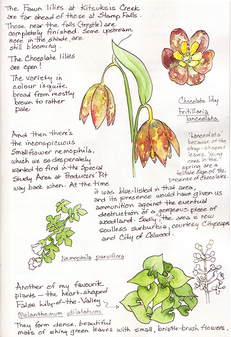 The Fawn lilies at Kitsuksis Creek
are far ahead of those at Stamp Falls.
Those near the falls (trestle) are
completely finished. Some upstream
more in the shade, are
still blooming.
The Chocolate lilies
are open!
The variety in
colour is quite
broad from mostly
brown to rather
pale.
Chocolate lily
Fritillaria
lanceolata
"lanceolata"
because of the
leaves.
in the
spring are a
sign of the
presence of chocolates.
And then there's
the inconspicuous
Smallflower nemophila,
which we so desperately
wanted to find in the Special
Study Area at Producers Pit
way back when. At the time
it was blue-listed in that area,
and its presence would have given us
ammunition against the eventual
destruction of a gorgeous piece of
woodland. Sadly, the area is now
soulless suburbia, courtesy Cityscape
and City of Colwood.
Nemophila parviflora
Another of my favourite
plants - the heart-shaped
False lily-of-the-Valley
Maianthemum dilatatum
They form dense, beautiful
mats of shiny green leaves with small, bristle-brush flowers.